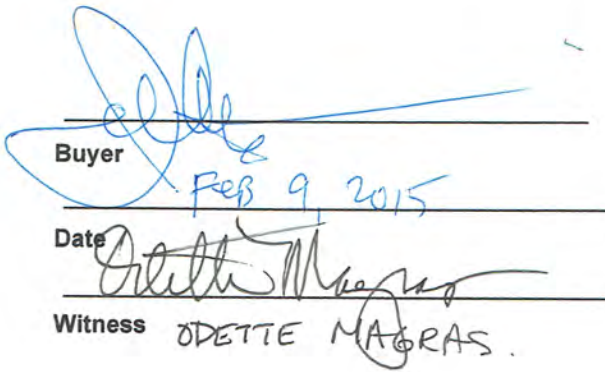 Buyer
FEB 9, 2015
Date
Odette Magras
Witness ODETTE MAGRAS.